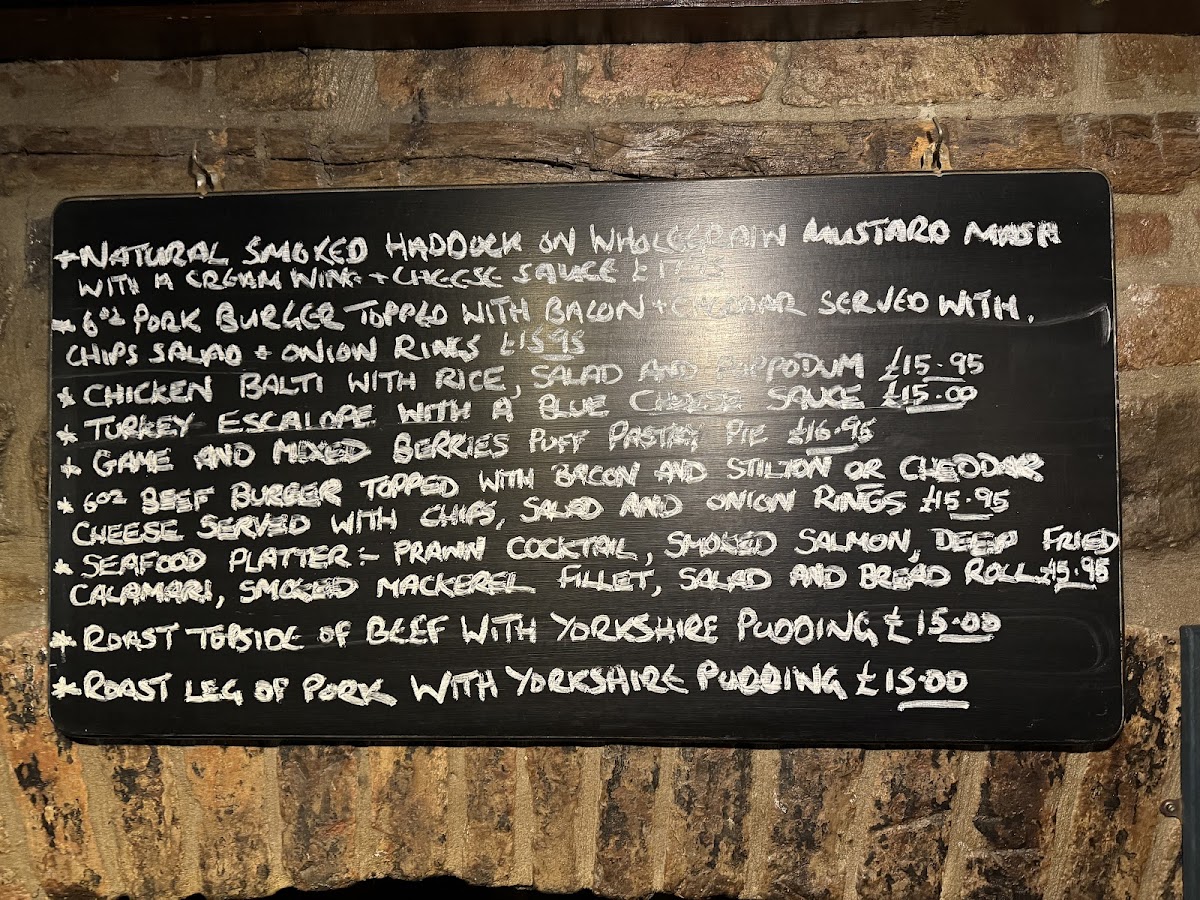 * NATURAL SMOKED HADDOCK ON WHOLEGRAIN MUSTARD MASH
WITH A CREAM WINE + CHEESE SAUCE £17.95
* 6oz PORK BURGER TOPPED WITH BACON + CHEDDAR SERVED WITH.
CHIPS SALAD + ONION RINGS £15.95
* CHICKEN BALTI WITH RICE, SALAD AND POPPODUM £15.95
* TURKEY ESCALOPE WITH A BLUE CHEESE SAUCE £15.00
* GAME AND MIXED BERRIES PUFF PASTRY PIE £16.95
* 6oz BEEF BURGER TOPPED WITH BACON AND STILTON OR CHEDDAR
CHEESE SERVED WITH CHIPS, SALAD AND ONION RINGS £15.95
* SEAFOOD PLATTER :- PRAWN COCKTAIL, SMOKED SALMON, DEEP FRIED
CALAMARI, SMOKED MACKEREL FILLET, SALAD AND BREAD ROLL £15.95
* ROAST TOPSIDE OF BEEF WITH YORKSHIRE PUDDING £15.00
* ROAST LEG OF PORK WITH YORKSHIRE PUDDING £15.00